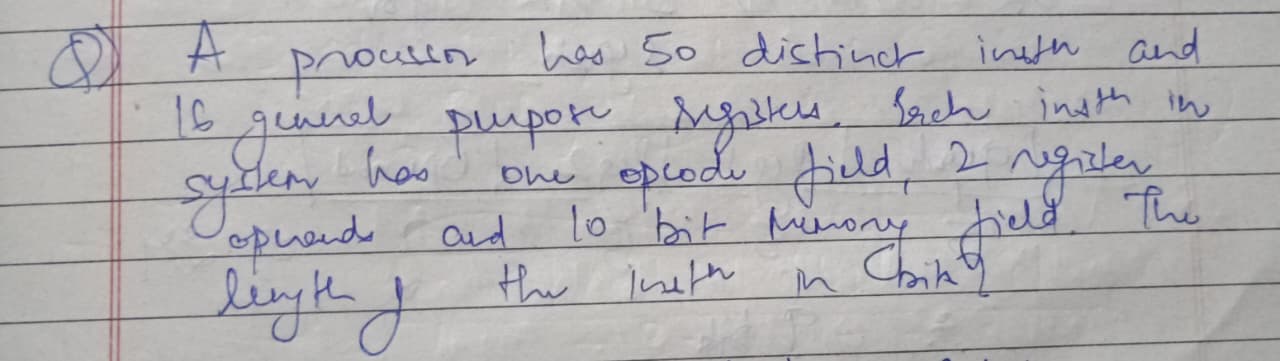 Q) A processor has 50 distinct instn and
16 general purpose registers. Each instn in
system has one opcode field, 2 register
operands and 10 bit memory field. The
length of the instn in (bits)